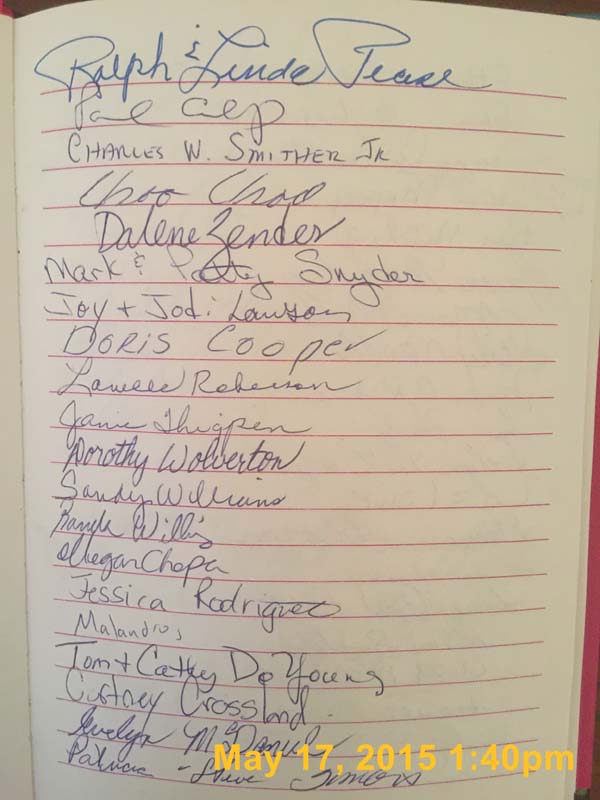 Ralph & Linda Pease
Paul Culp
CHARLES W. SMITHER JR
Choo Choo
Dalene Zender
Mark & Patty Snyder
Joy + Jodi Lawson
DORIS COOPER
Roberson
Janie Thigpen
Dorothy Wolverton
Sandy Williams
Willis
Megan Chapa
Jessica Rodriguez
Malandros
Tom + Cathy De Young
Cortney Crossland
Evelyn McDaniel
May 17, 2015 1:40pm
Patricia - Steve Simons